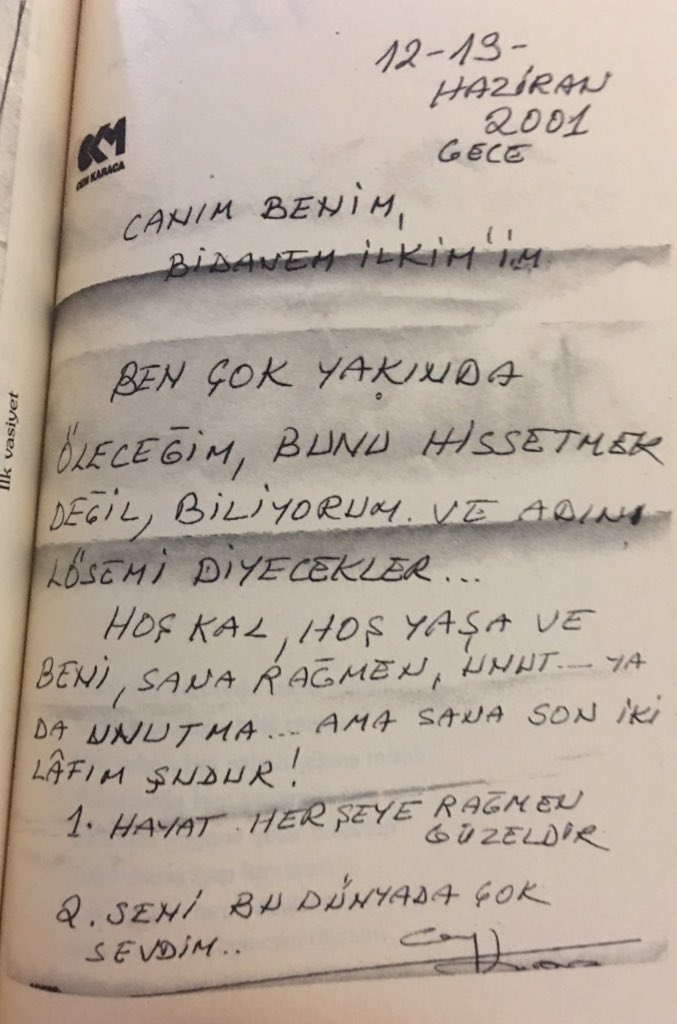 12-13-
HAZİRAN
2001
GECE
CEM KARACA
CANIM BENİM,
BİDANEM İLKİM'İM
BEN ÇOK YAKINDA
ÖLECEĞİM, BUNU HISSETMEK
DEĞİL, BİLİYORUM. VE ADINI
LÖSEMİ DİYECEKLER...
HOŞ KAL, HOŞ YAŞA VE
BENİ, SANA RAĞMEN, UNUT... YA
DA UNUTMA... AMA SANA SON İKİ
LÂFIM ŞUDUR!
1. HAYAT HERŞEYE RAĞMEN
GÜZELDİR
2. SENİ BU DÜNYADA ÇOK
SEVDİM..
İlk vasiyet